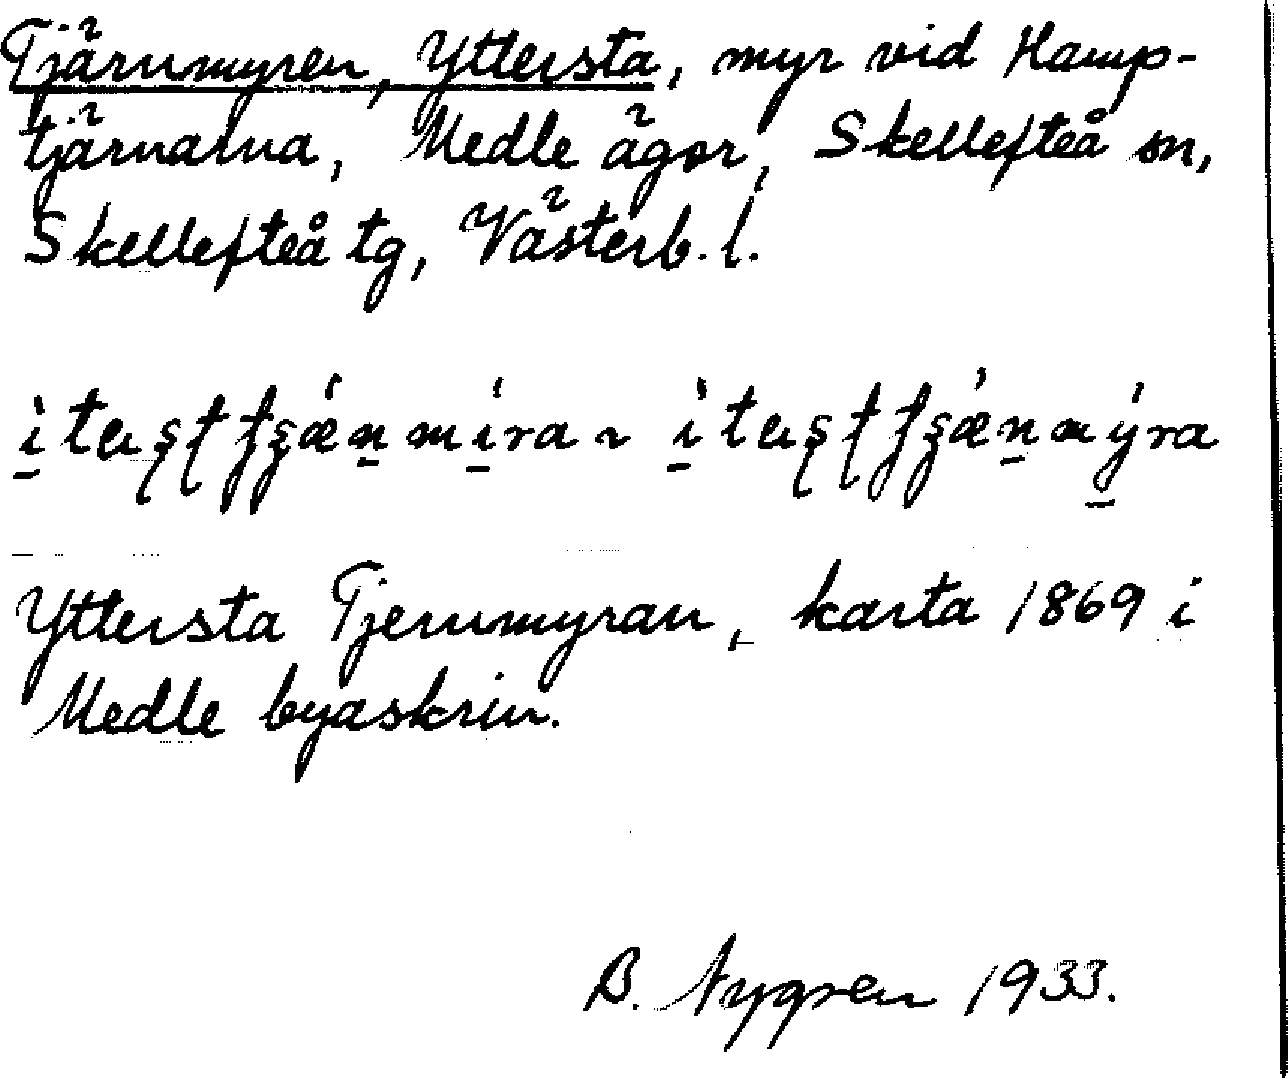 Tjärnmyren, Yttersta, myr vid Hamp-
tjärnarna, Medle ägor, Skellefteå sn,
Skellefteå tg, Västerb. l.
Yttersta Tjernmyran, karta 1869 i
Medle byaskrin.
B. Nygren 1933.